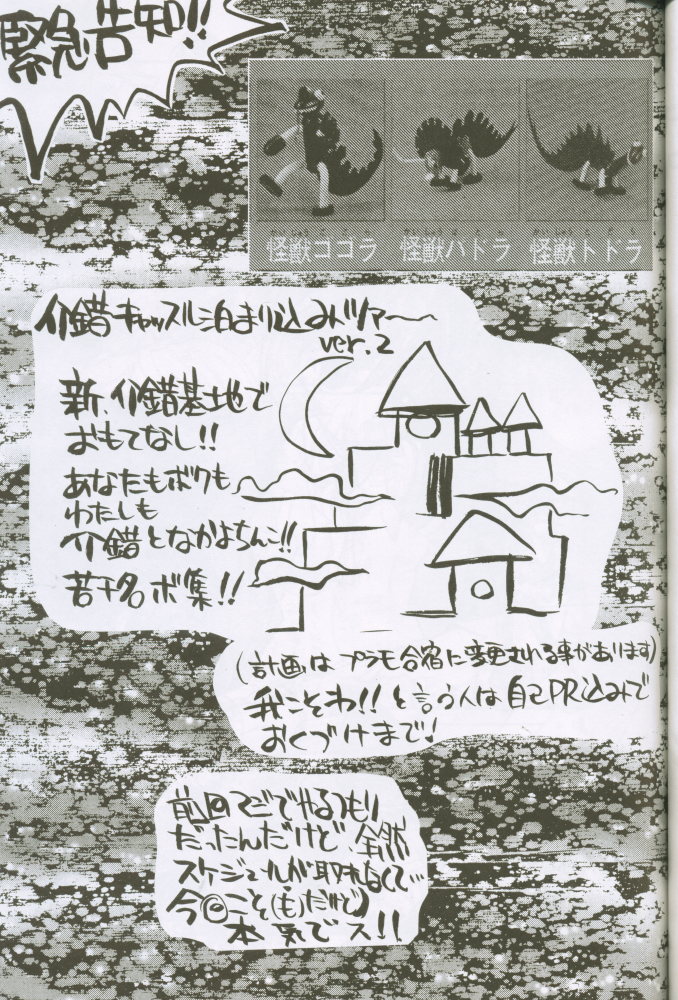 緊急告知!!
かいじゅう
怪獣ゴゴラ
かいじゅう
怪獣ハドラ
かいじゅう
怪獣トドラ
介錯キャッスル泊まり込みツアー
ver.2
新、介錯基地で
おもてなし!!
あなたもボクも
わたしも
介錯となかよちんこ!!
若干名ボ集!!
(計画はプラモ合宿に変更される事があります)
我こそわ!!と言う人は自己PR込みで
おくづけまで!
前回マジでやるつもり
だったんだけど、全然
スケジュールが取れなくて…
今回こそ(も)だけど)
本気でス!!